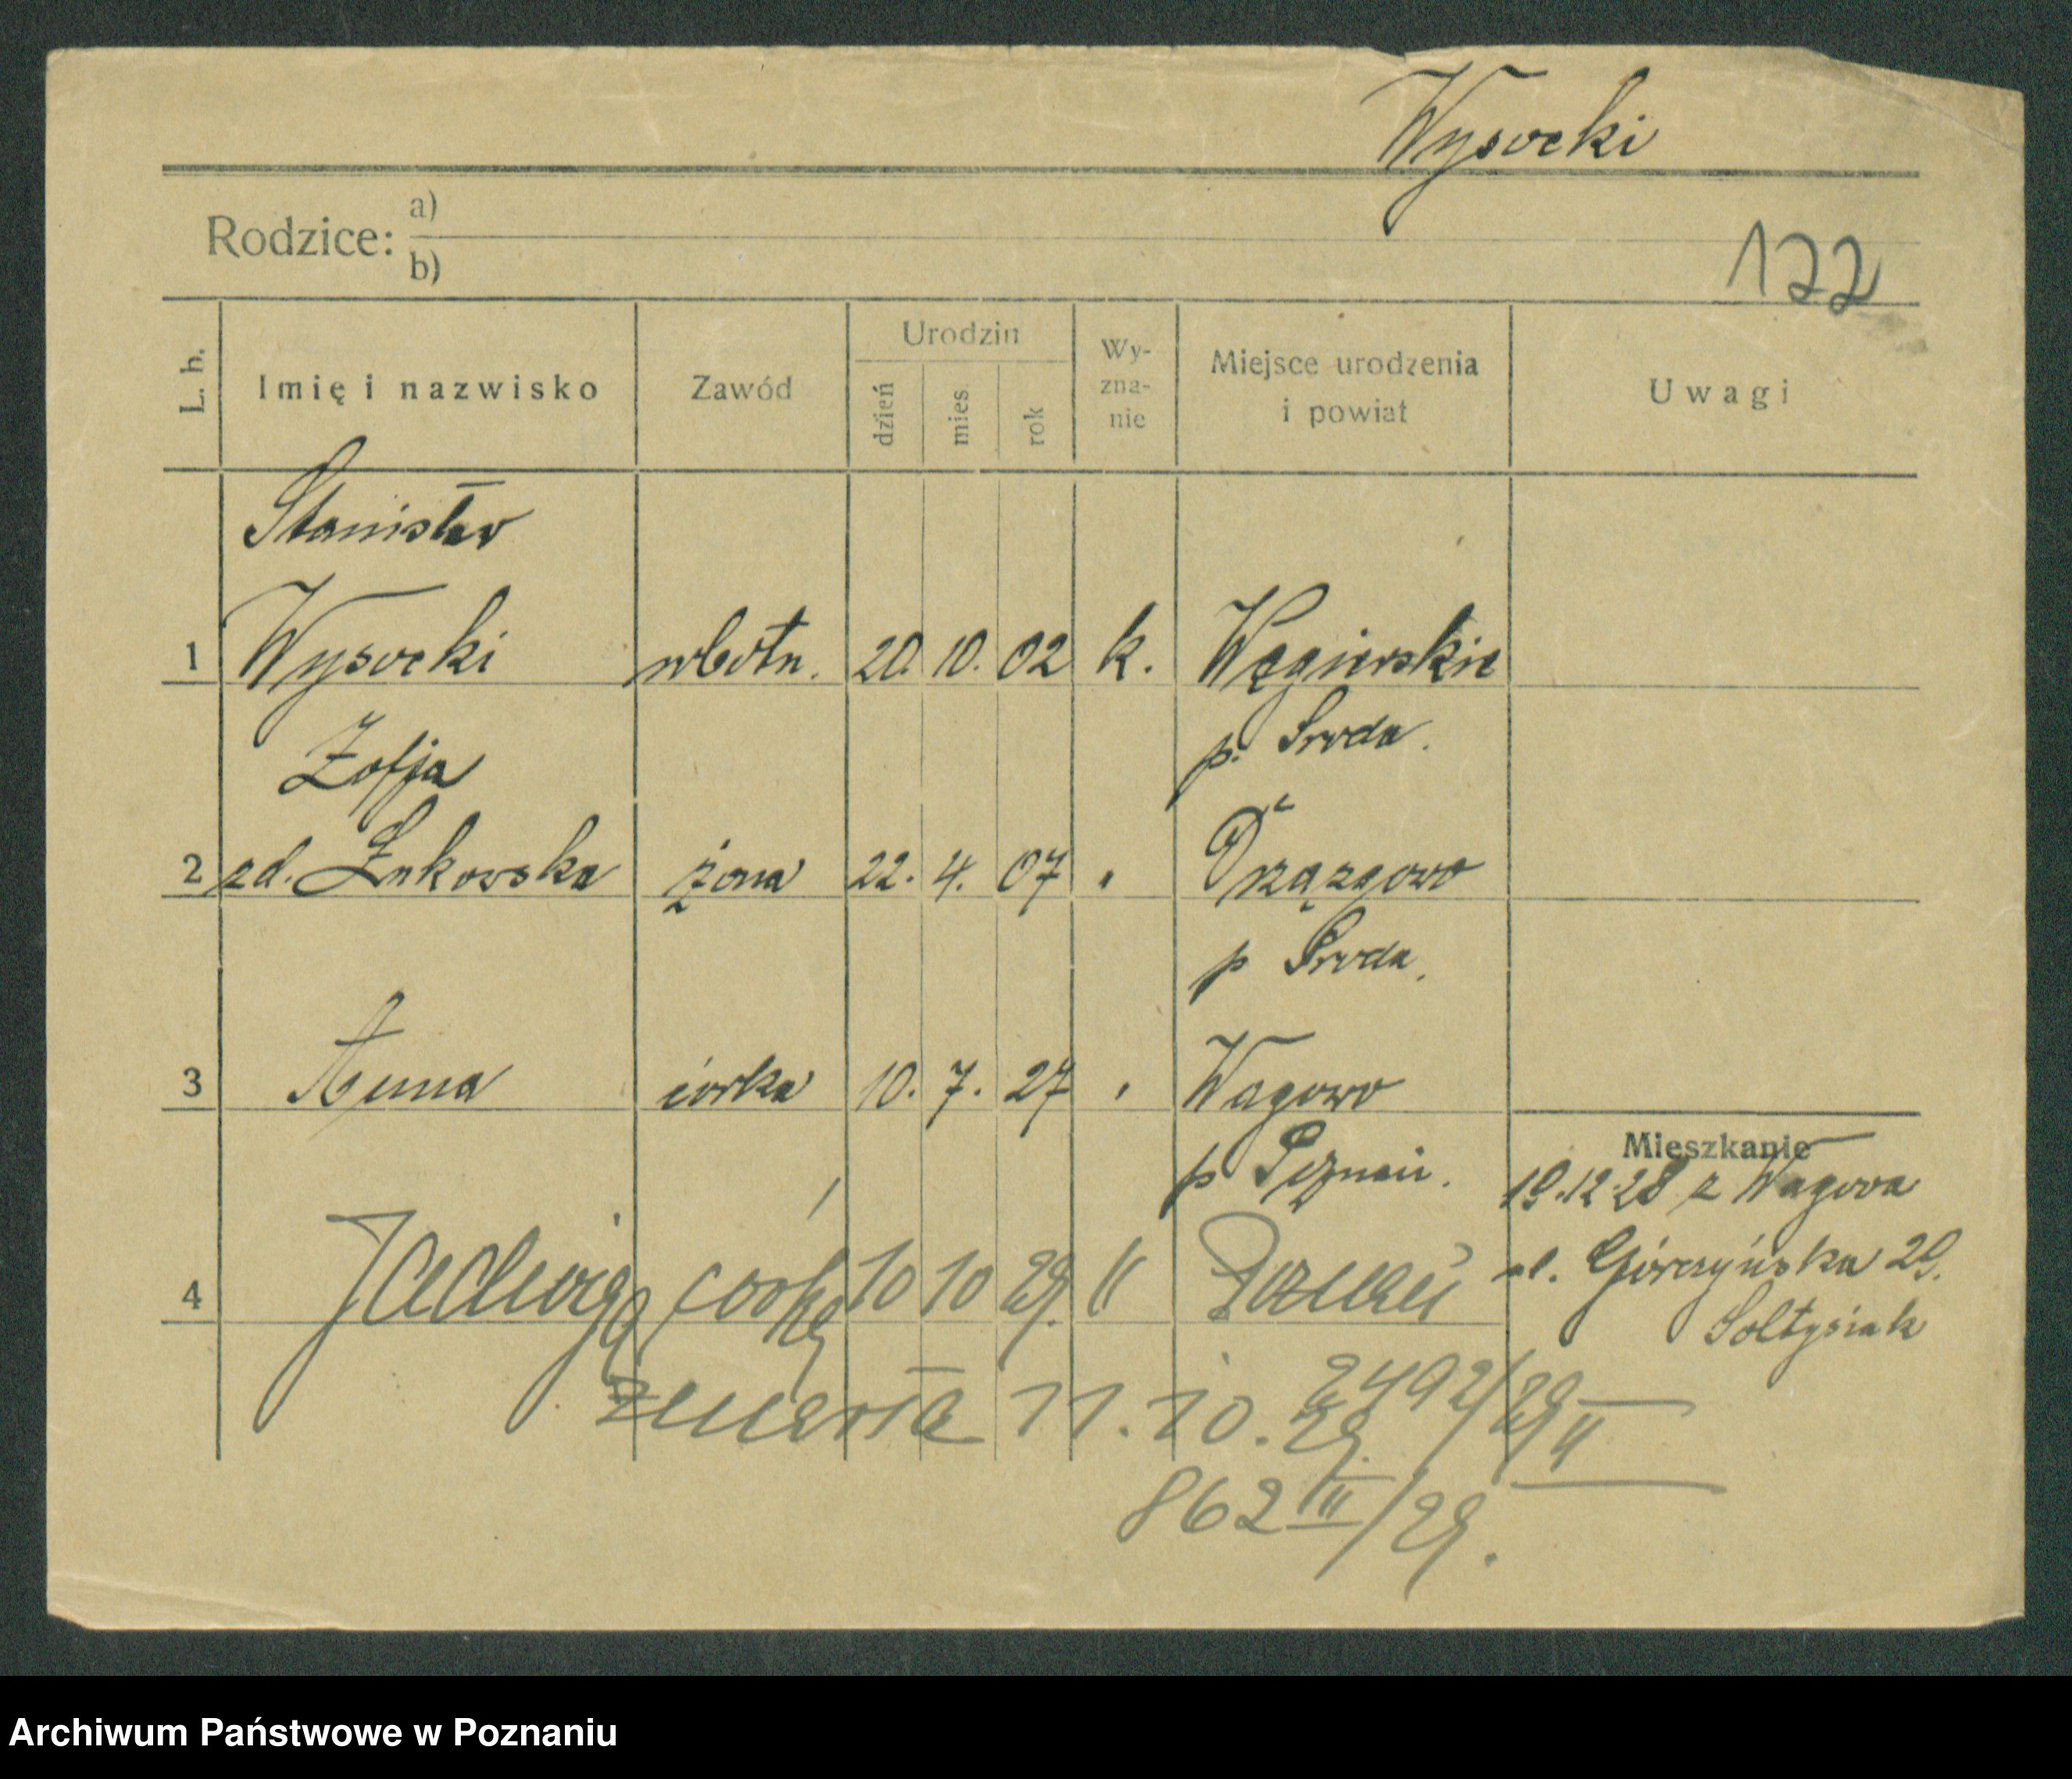 Wysocki
Rodzice: a)
b)
122
L. b. Imię i nazwisko Zawód Urodzin dzień mies. rok Wy-zna-nie Miejsce urodzenia i powiat Uwagi
Stanisław
1 Wysocki robotn. 20. 10. 02 k. Węgierskie
p. Sroda.
Zofja
2 zd. Żukowska żona 22. 4. 07 " Drzązgowo
p Sroda.
3 Anna córka 10. 7. 27 " Wagowo
p Poznań.
Mieszkanie
19.12.28 z Wagowa
ul. Górczyńska 29.
Sołtysiak
4 Jadwiga córka 10 10 29. k Poznań
zmarła 11.10.29. 2492/29 II
862 III/29.
Archiwum Państwowe w Poznaniu